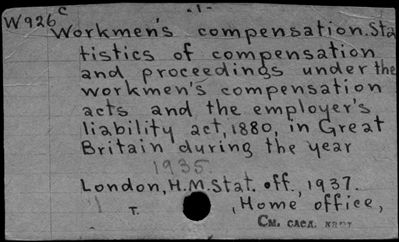 c -1-
W926 Workmen's compensation. Sta
tistics of compensation
and proceedings under the
workmen's compensation
acts and the employer's
liability act, 1880, in Great
Britain during the year
1935
London, H.M. Stat. off., 1937.
T. , Home office,
См. след.